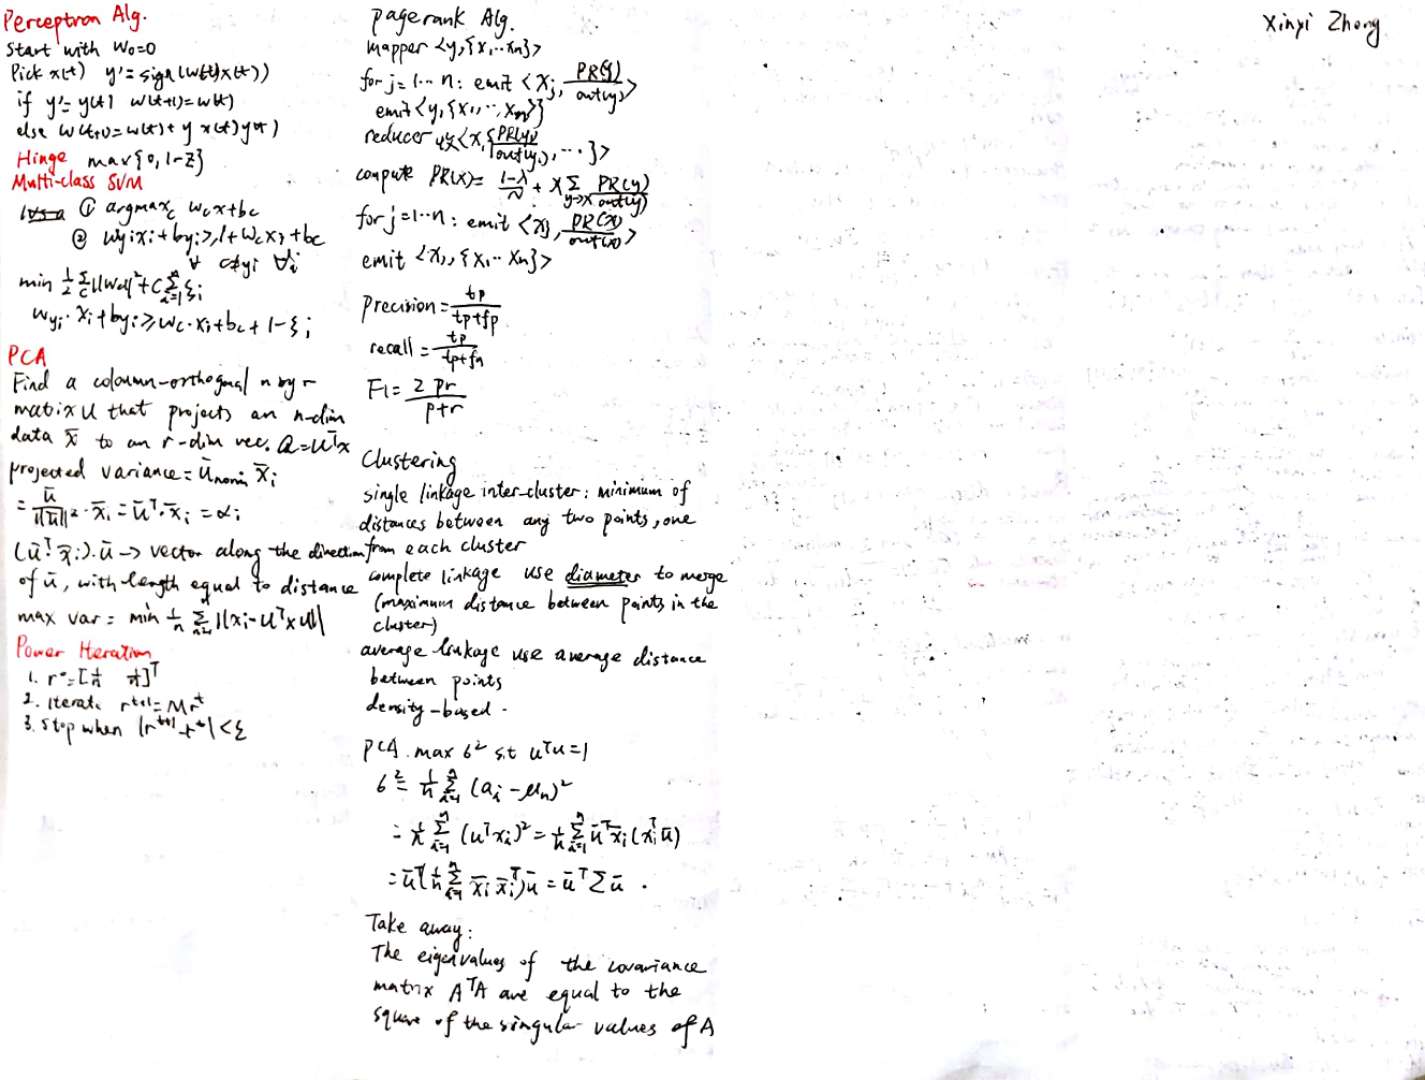 Perceptron Alg.
Start with w₀=0
Pick x(t) y'=sign(w(t)x(t))
if y'=y(t) w(t+1)=w(t)
else w(t+1)=w(t)+ y x(t)y(t)
Hinge max{0,1-z}
Multi-class SVM
① argmax_c w_c x+b_c
② w_yi x_i+b_yi ≥ 1+w_c x_i+b_c
∀ c≠y_i ∀i
min 1/2 Σ_c ||w_c||²+C Σ_{i=1}^n ξ_i
w_yi · x_i+b_yi ≥ w_c·x_i+b_c+1-ξ_i
PCA
Find a coloumn-orthogonal n by r
matrix U that projects an n-dim
data x̄ to an r-dim vec. a=Uᵀx
projected variance= ū_norm x̄_i
= ū/||ū||² · x̄_i = ūᵀ·x̄_i = α_i
(ūᵀ·x̄_i)·ū → vector along the direction
of ū, with length equal to distance
max var = min 1/n Σ ||x_i-Uᵀx U||
Power Iteration
1. r⁰=[1/n 1/n]ᵀ
2. iterate r^{t+1}=Mr^t
3. Stop when |r^{t+1}-r^t|<ξ
pagerank Alg.
mapper <y,{x₁..x_n}>
for j=1...n: emit <x_j, PR(y)/out(y)>
emit<y,{x₁,..,x_n}>
reducer <x,{PR(y₁)/out(y₁),...}>
compute PR(x)= (1-λ)/N + λ Σ_{y→x} PR(y)/out(y)
for j=1..n: emit <x_j, PR(x)/out(x)>
emit <x,,{x₁..x_n}>
precision= tp/(tp+fp)
recall = tp/(tp+fn)
F1= 2pr/(p+r)
Clustering
single linkage inter-cluster: minimum of
distances between any two points, one
from each cluster
complete linkage use diameter to merge
(maximum distance between points in the
cluster)
average linkage use average distance
between points
density-based.
PCA. max 6² s.t uᵀu=1
6²= 1/n Σ_{i=1}^n (a_i-μ_n)²
= 1/n Σ_{i=1}^n (uᵀx_i)² = 1/n Σ_{i=1}^n ūᵀx̄_i(x̄_iᵀū)
= ūᵀ(1/n Σ_{i=1}^n x̄_i x̄_iᵀ)ū = ūᵀΣū .
Take away:
The eigenvalues of the covariance
matrix AᵀA are equal to the
square of the singular values of A
Xinyi Zheng